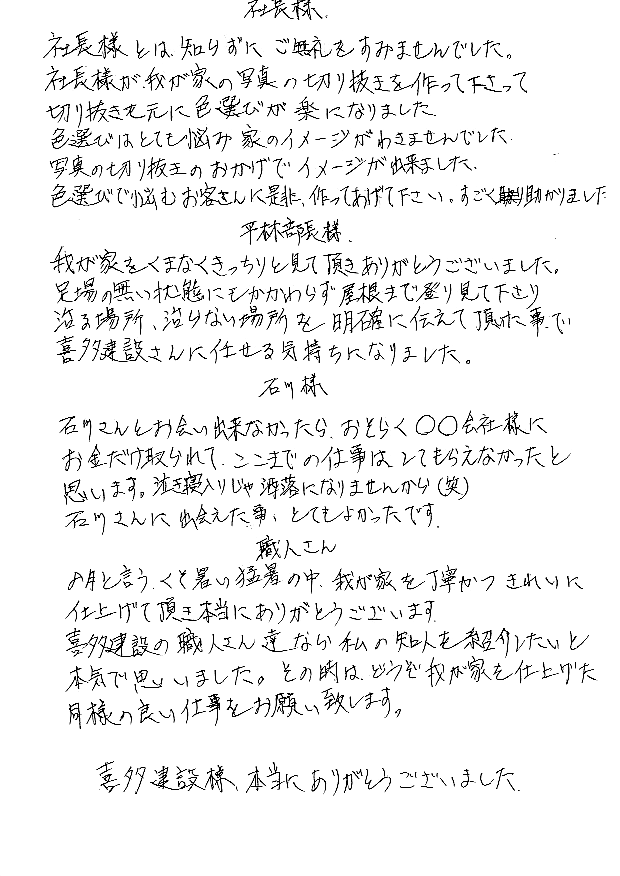 社長様
社長様とは、知らずにご無礼をすみませんでした。
社長様が我が家の写真の切り抜きを作って下さって
切り抜きを元に色選びが楽になりました
色選びはとても悩み家のイメージがわきませんでした
写真の切り抜きのおかげでイメージが出来ました、
色選びで悩むお客さんに是非、作ってあげて下さい。すごく助かりました
平林部長様
我が家をくまなくきっちりと見て頂きありがとうございました。
足場の無い状態にもかかわらず屋根まで登り見て下さり
治る場所、治らない場所を明確に伝えて頂けた事で
喜多建設さんに任せる気持ちになりました。
石川様
石川さんとお会い出来なかったら、おそらく〇〇会社様に
お金だけ取られて、ここまでの仕事はしてもらえなかったと
思います。泣き寝入りじゃ洒落になりませんから(笑)
石川さんに出会えた事、とてもよかったです。
職人さん
8月と言う、くそ暑い猛暑の中、我が家を丁寧かつきれいに
仕上げて頂き本当にありがとうございます
喜多建設の職人さん達なら私の知人を紹介したいと
本気で思いました。その時は、どうぞ我が家を仕上げた
同様の良い仕事をお願い致します。
喜多建設様、本当にありがとうございました